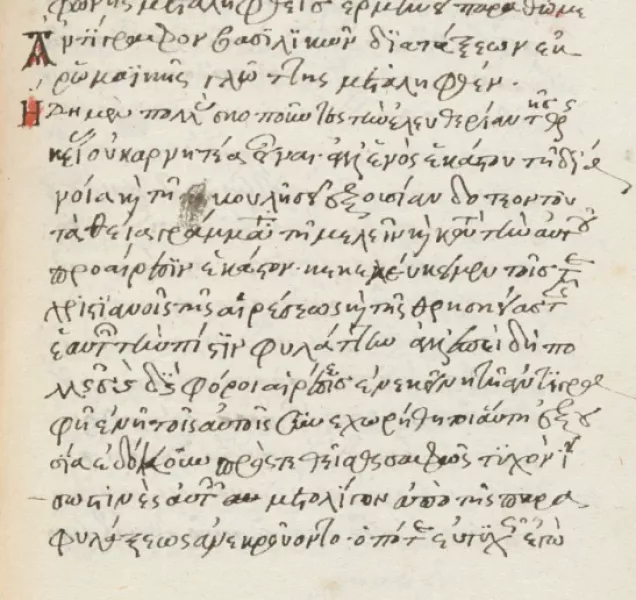 φωνῆς μεταληφθεῖσ ἑρμην παραθώμε
Ἀντίγραφον βασιλικῶν διατάξεων ἐκ
ρωμαϊκῆς γλώττης μεταληφθέν·
Ἤδη μὲν πάλαι σκοποῦντες τὴν ἐλευθερίαν τῆς θρησ
κείας οὐκ ἀρνητέαν εἶναι· ἀλλ' ἑνὸς ἑκάστου τῇ δια
νοία καὶ τῇ βουλήσει ἐξουσίαν δοτέον τοῦ
τὰ θεῖα πράγματα τημελεῖν κατὰ τὴν αὐτοῦ
προαίρεσιν ἕκαστον· κεκελεύκειμεν τοῖς τε
χριστιανοῖς τῆς αἱρέσεως καὶ τῆς θρησκείας τῆς
ἑαυτῶν τὴν πίστιν φυλάττειν ἀλλ' ἐπειδὴ πο
λλαὶ καὶ διάφοροι αἱρέσεις ἐν ἐκείνη τῇ ἀντιγρα
φῇ ἐν ᾗ τοῖς αὐτοῖς συνεχωρήθη τοιαύτη ἐξου
σία ἐδόκουν προστεθεῖσθαι σαφῶς τυχὸν ἴ
σως τινὲς αὐτῶν μετ' ὀλίγον ἀπὸ τῆς παρα
φυλάξεως ἀνεκρούοντο· ὁπότε εὐτυχῶς ἐγὼ